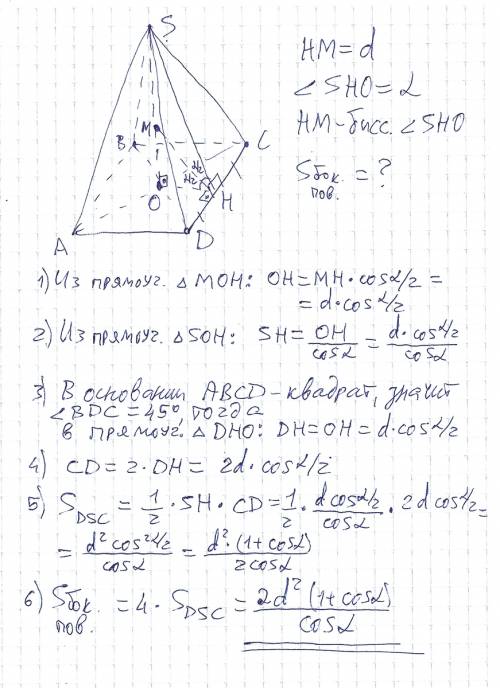 S
HM = d
∠SHO = α
HM-бисс. ∠SHO
Sбок. пов. = ?
M
B
C
α/2
α/2
O
H
A
D
1) Из прямоуг. △ MOH: OH = MH · cos α/2 =
= d · cos α/2
2) Из прямоуг. △ SOH: SH = OH/cosα = d · cos α/2 / cosα
3) В основании ABCD - квадрат, значит
∠BDC = 45°, тогда
в прямоуг. △ DHO: DH = OH = d · cos α/2
4) CD = 2 · DH = 2d · cos α/2
5) S DSC = 1/2 · SH · CD = 1/2 · d cos α/2 / cosα · 2d cos α/2 =
= d² cos² α/2 / cosα = d² · (1 + cosα) / 2cosα
6) Sбок. пов. = 4 · S DSC = 2d² (1 + cosα) / cosα